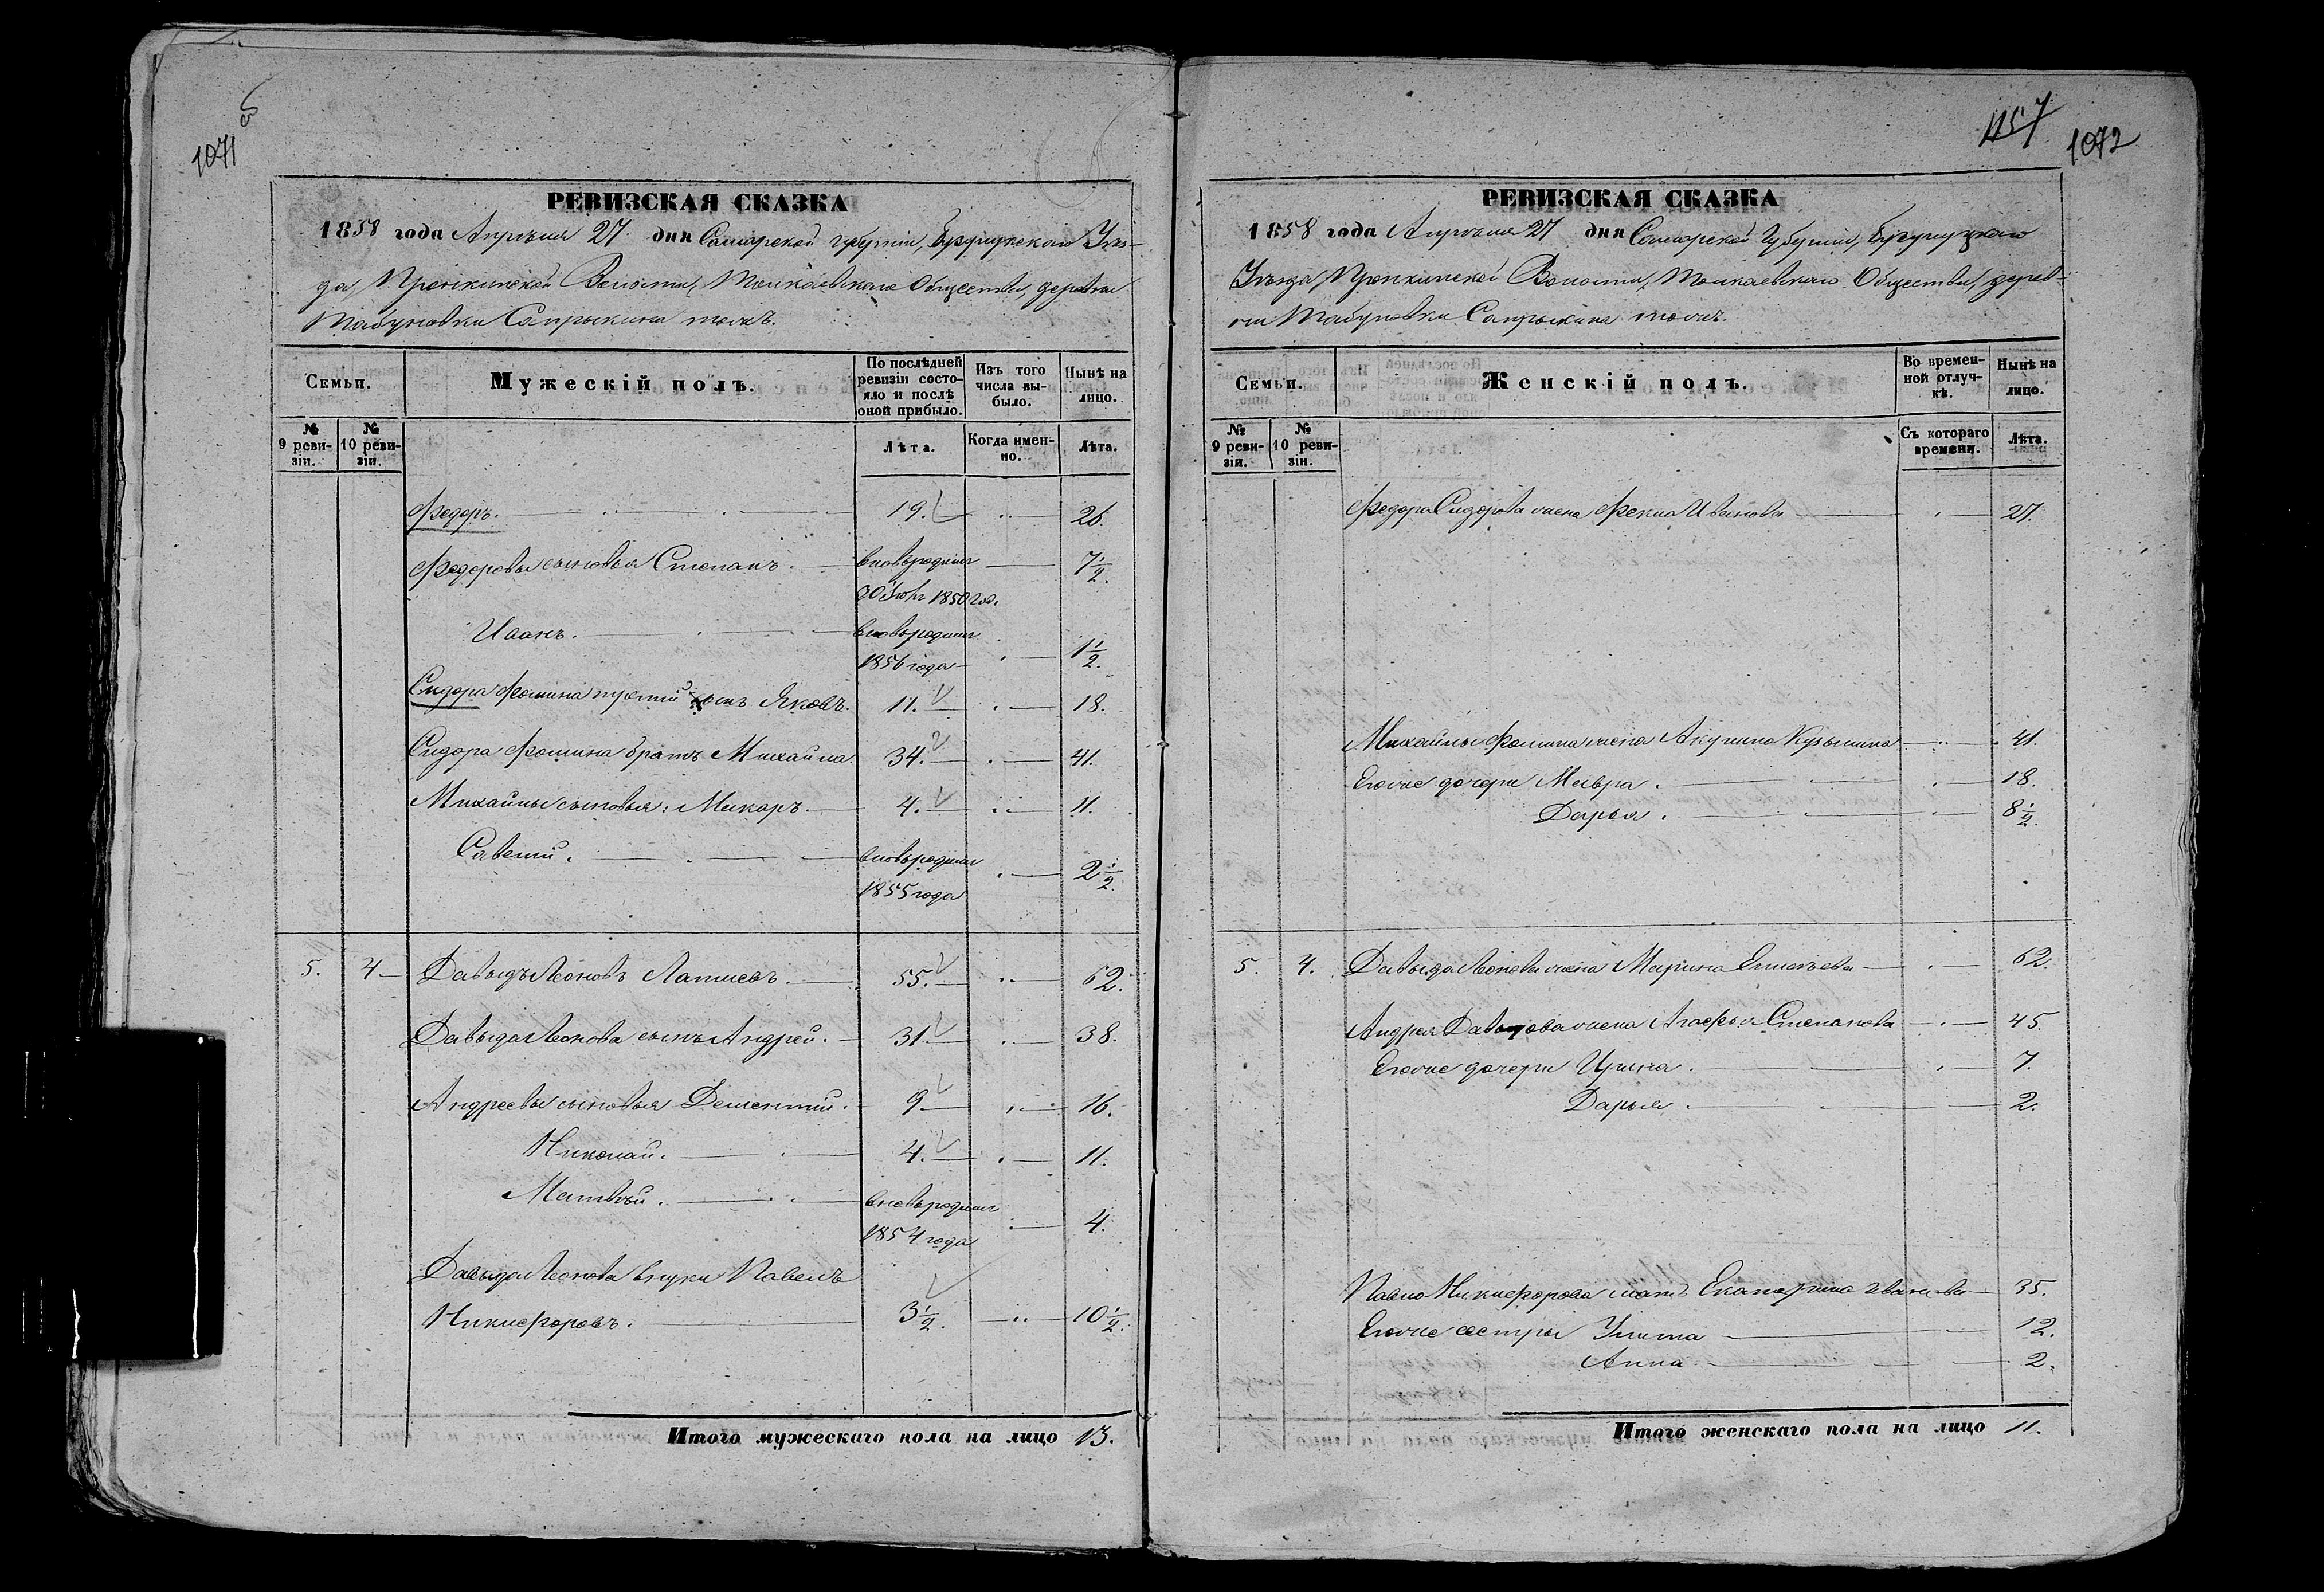 1071
об
РЕВИЗСКАЯ СКАЗКА
1858 года Апрѣля 27 дня Самарской губерніи, Бугурусскаго Уѣз-
да, Пронкинской Волости, Толкаевскаго Общества, деревни
Табуновки Сапрыкина тожъ.
Семьи.
Мужескій полъ.
По послѣдней ревизіи состо-яло и послѣ оной прибыло.
Изъ того числа вы-было.
Нынѣ на лицо.
№ 9 реви-зіи.
№ 10 реви-зіи.
Лѣта.
Когда имен-но.
Лѣта.
Федоръ. 19. 26.
Федоровы сыновья Степанъ. вновьрожден 7 1/2.
1850 год.
Иванъ. вновьрожден
1856 года 1 1/2.
Сидора Фомина третий сынъ Яковъ. 11. 18.
Сидора Фомина братъ Михайла. 34. 41.
Михайлы сыновья: Макаръ. 4. 11.
Савелий. вновьрожден
1855 года 2 1/2.
5. 4 Давыдъ Леоновъ 55. 62.
Давыда Леонова сынъ Андрей. 31. 38.
Андреевы сыновья Дементий. 9. 16.
Николай. 4. 11.
Матвѣй. вновьрожден
1854 года 4.
Давыда Леонова внукъ Павелъ
Никифоровъ. 3 1/2. 10 1/2.
Итого мужескаго пола на лицо 13.
1157
1072
РЕВИЗСКАЯ СКАЗКА
1858 года Апрѣля 27 дня Самарской Губерніи, Бугурузскаго
Уѣзда, Пронкинской Волости, Толкаевскаго Общества, дерев-
ни Табуновки Сапрыкина тожъ.
Семьи.
Женскій полъ.
Во времен-ной отлуч-кѣ.
Нынѣ на лицо.
№ 9 реви-зіи.
№ 10 реви-зіи.
Съ котораго времени.
Лѣта.
Федора Сидорова жена Фекла Иванова 27.
Михайлы Фомина жена Акулина Кузьмина 41.
Егоже дочери Мавра. 18.
Дарья. 8 1/2.
5. 4. Давыда Леонова жена Марина 62.
Андрея Давыдова жена Агафья Степанова 45.
Егоже дочери Ирина. 7.
Дарья. 2.
Павла Никифорова мать Екатерина Иванова 35.
Егоже сестры Улита 12.
Анна. 2.
Итого женскаго пола на лицо 11.